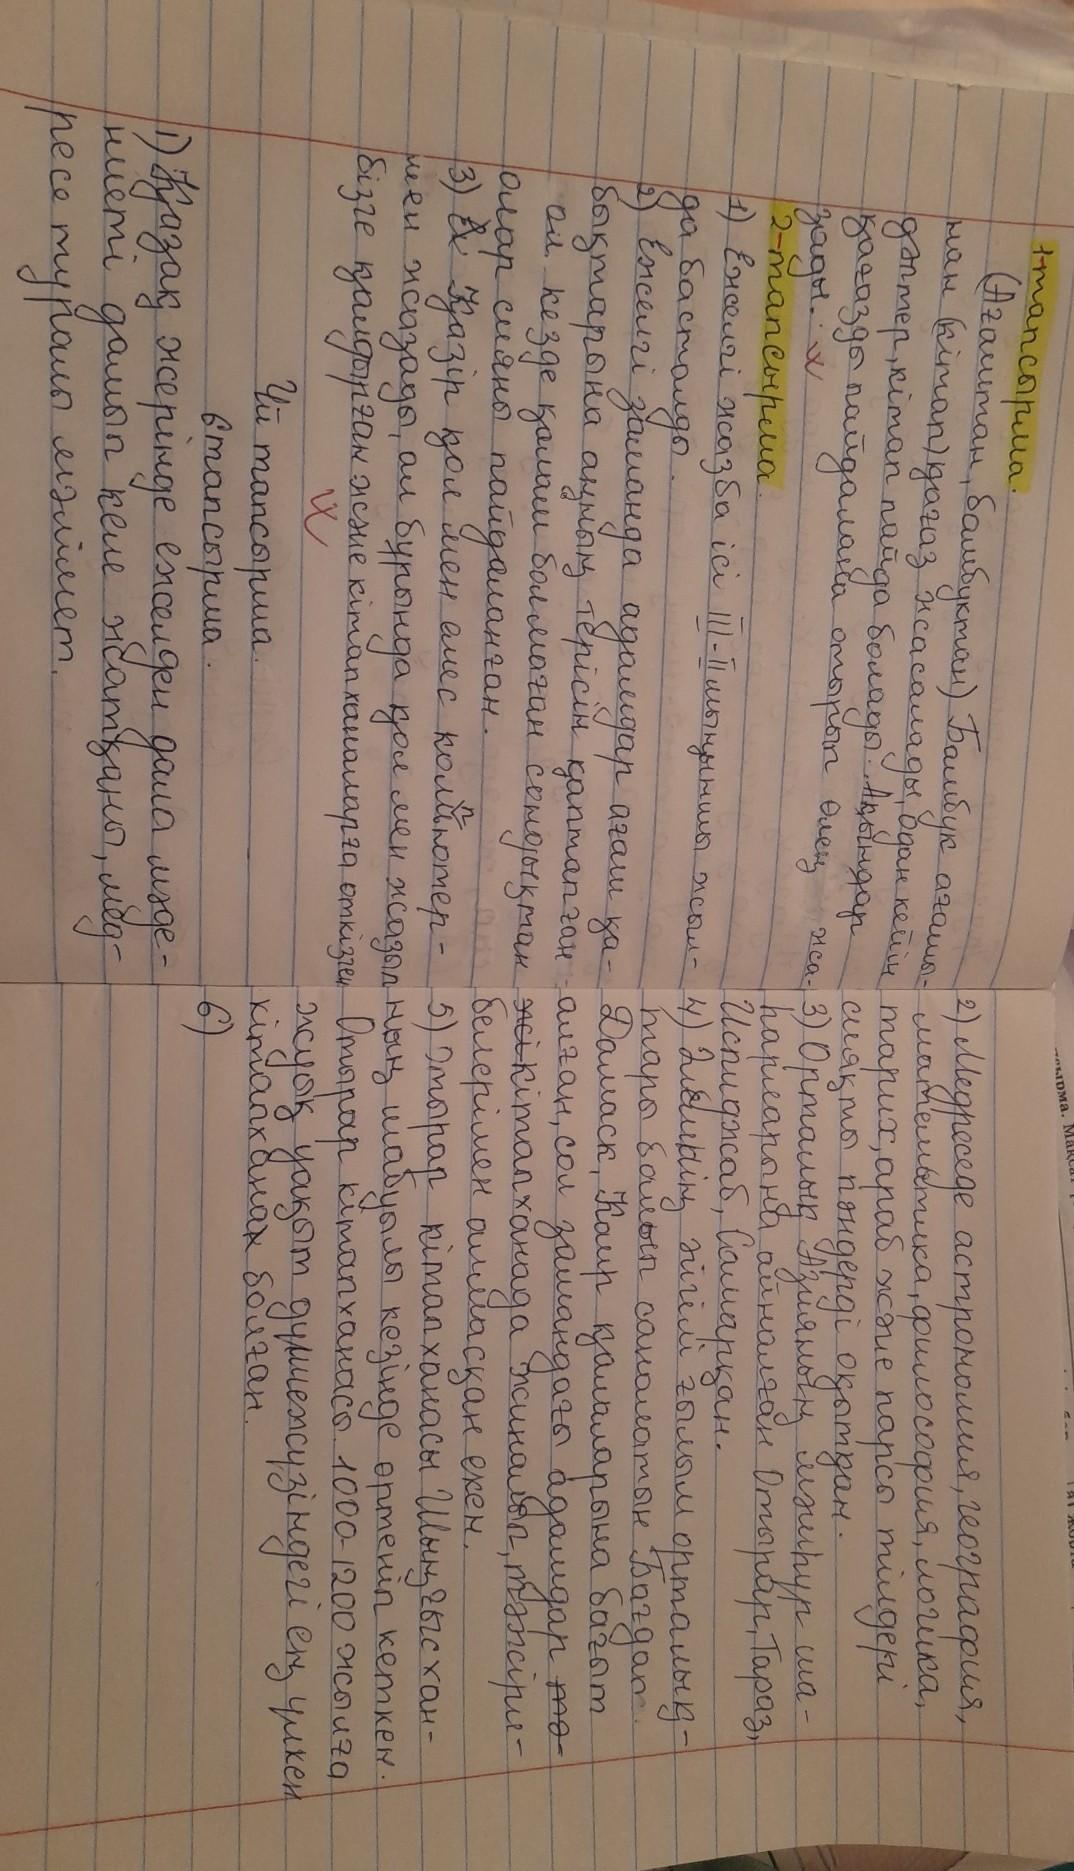 1-тапсырма.
(Ағаштан, бамбуктан) Бамбук ағашы-
нан (кітап) қағаз жасалады, одан кейін
дәптер, кітап пайда болады. Ақындар
қағазды пайдалана отырып өлең жа-
зады.
2-тапсырма.
1) Ежелгі жазба ісі III-II мыңыншы жыл-
да басталды.
2) Ежелгі заманда адамдар ағаш қа-
бықтарына аңның терісін қаптаған
ал кезде қалам болмаған сондықтан
олар сияны пайдаланған.
3) Қазір қол мен емес компютер-
мен жазады, ал бұрында қол мен жазып
бізге қалдырған және кітапханаларға өткізген
Үй тапсырма.
6 тапсырма.
1) Қазақ жерінде ежелден дала мәде-
ниеті дамып келе жатқаны, мед-
ресе туралы мәлімет.
2) Медреседе астрономия, география,
математика, философия, логика,
тарих, араб және парсы тілдері
сияқты пәндерді оқытқан.
3) Орталық Азияның мәшһүр ша-
һарларына айналған Отырар, Тараз,
Испиджаб, Самарқан.
4) Әлемнің игілі ғылым орталық-
тары болып саналатын Бағдат.
Дамаск, Каир қалаларына бағыт
алған, сол замандағы адамдар то-
жі кітапханада жиналып, тәжіри-
белерімен алмасқан екен.
5) Отырар кітапханасы Шыңғысхан-
ның шабуылы кезінде өртеніп кеткен.
Отырар кітапханасы 1000-1200 жылға
жуық уақыт дүниежүзіндегі ең үлкен
кітапхана болған.
6)